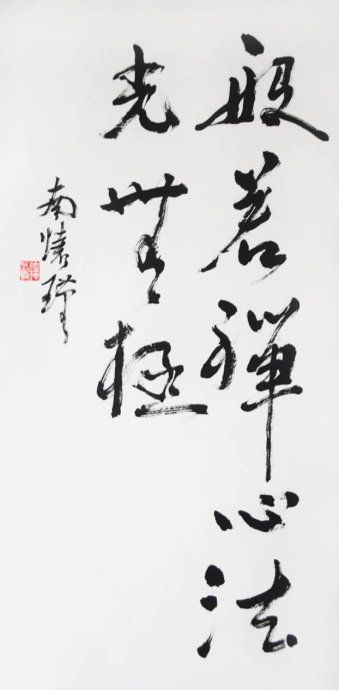 般若禪心法
光無極
南懷瑾